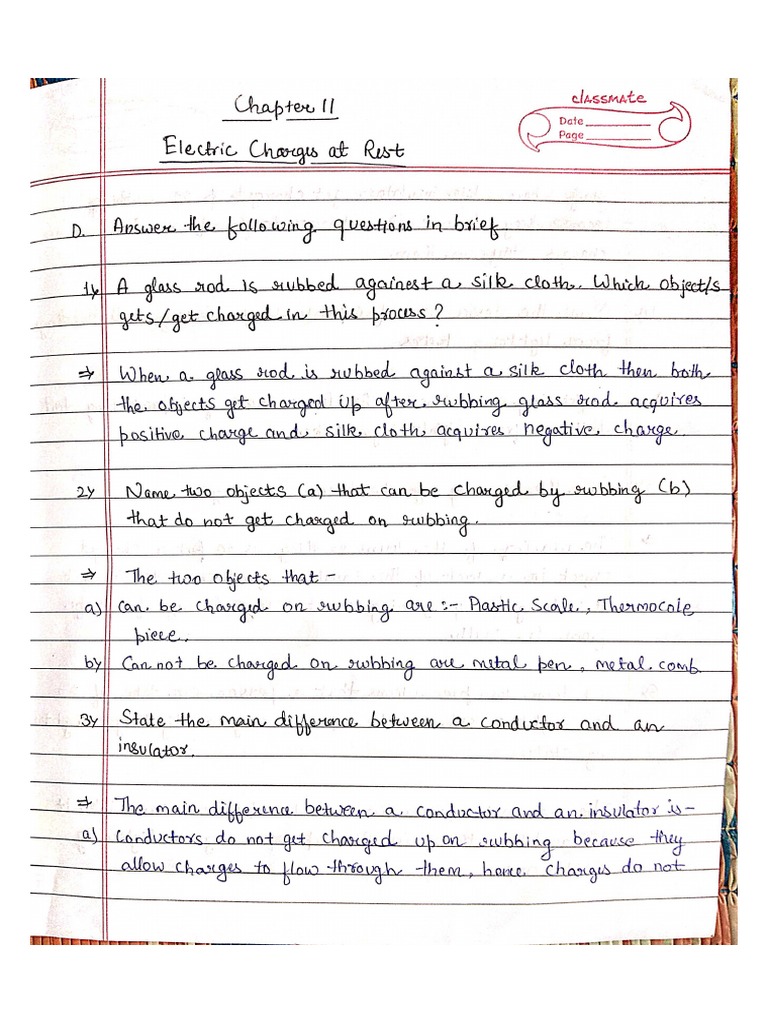 Chapter 11
classmate
Date
Page
Electric Charges at Rest
D. Answer the following questions in brief.
1y A glass rod is rubbed againest a silk cloth. Which object/s
gets/get charged in this process?
⇒ When a glass rod is rubbed against a silk cloth then both
the objects get charged up after rubbing glass rod acquires
positive charge and silk cloth acquires negative charge.
2y Name two objects (a) that can be charged by rubbing (b)
that do not get charged on rubbing.
⇒ The two objects that -
a) Can be charged on rubbing are :- Plastic Scale, Thermocole
piece.
by Can not be charged on rubbing are metal pen, metal comb
3y State the main difference between a conductor and an
insulator.
⇒ The main difference between a conductor and an insulator is -
a) Conductors do not get charged up on rubbing because they
allow charges to flow through them, hence charges do not